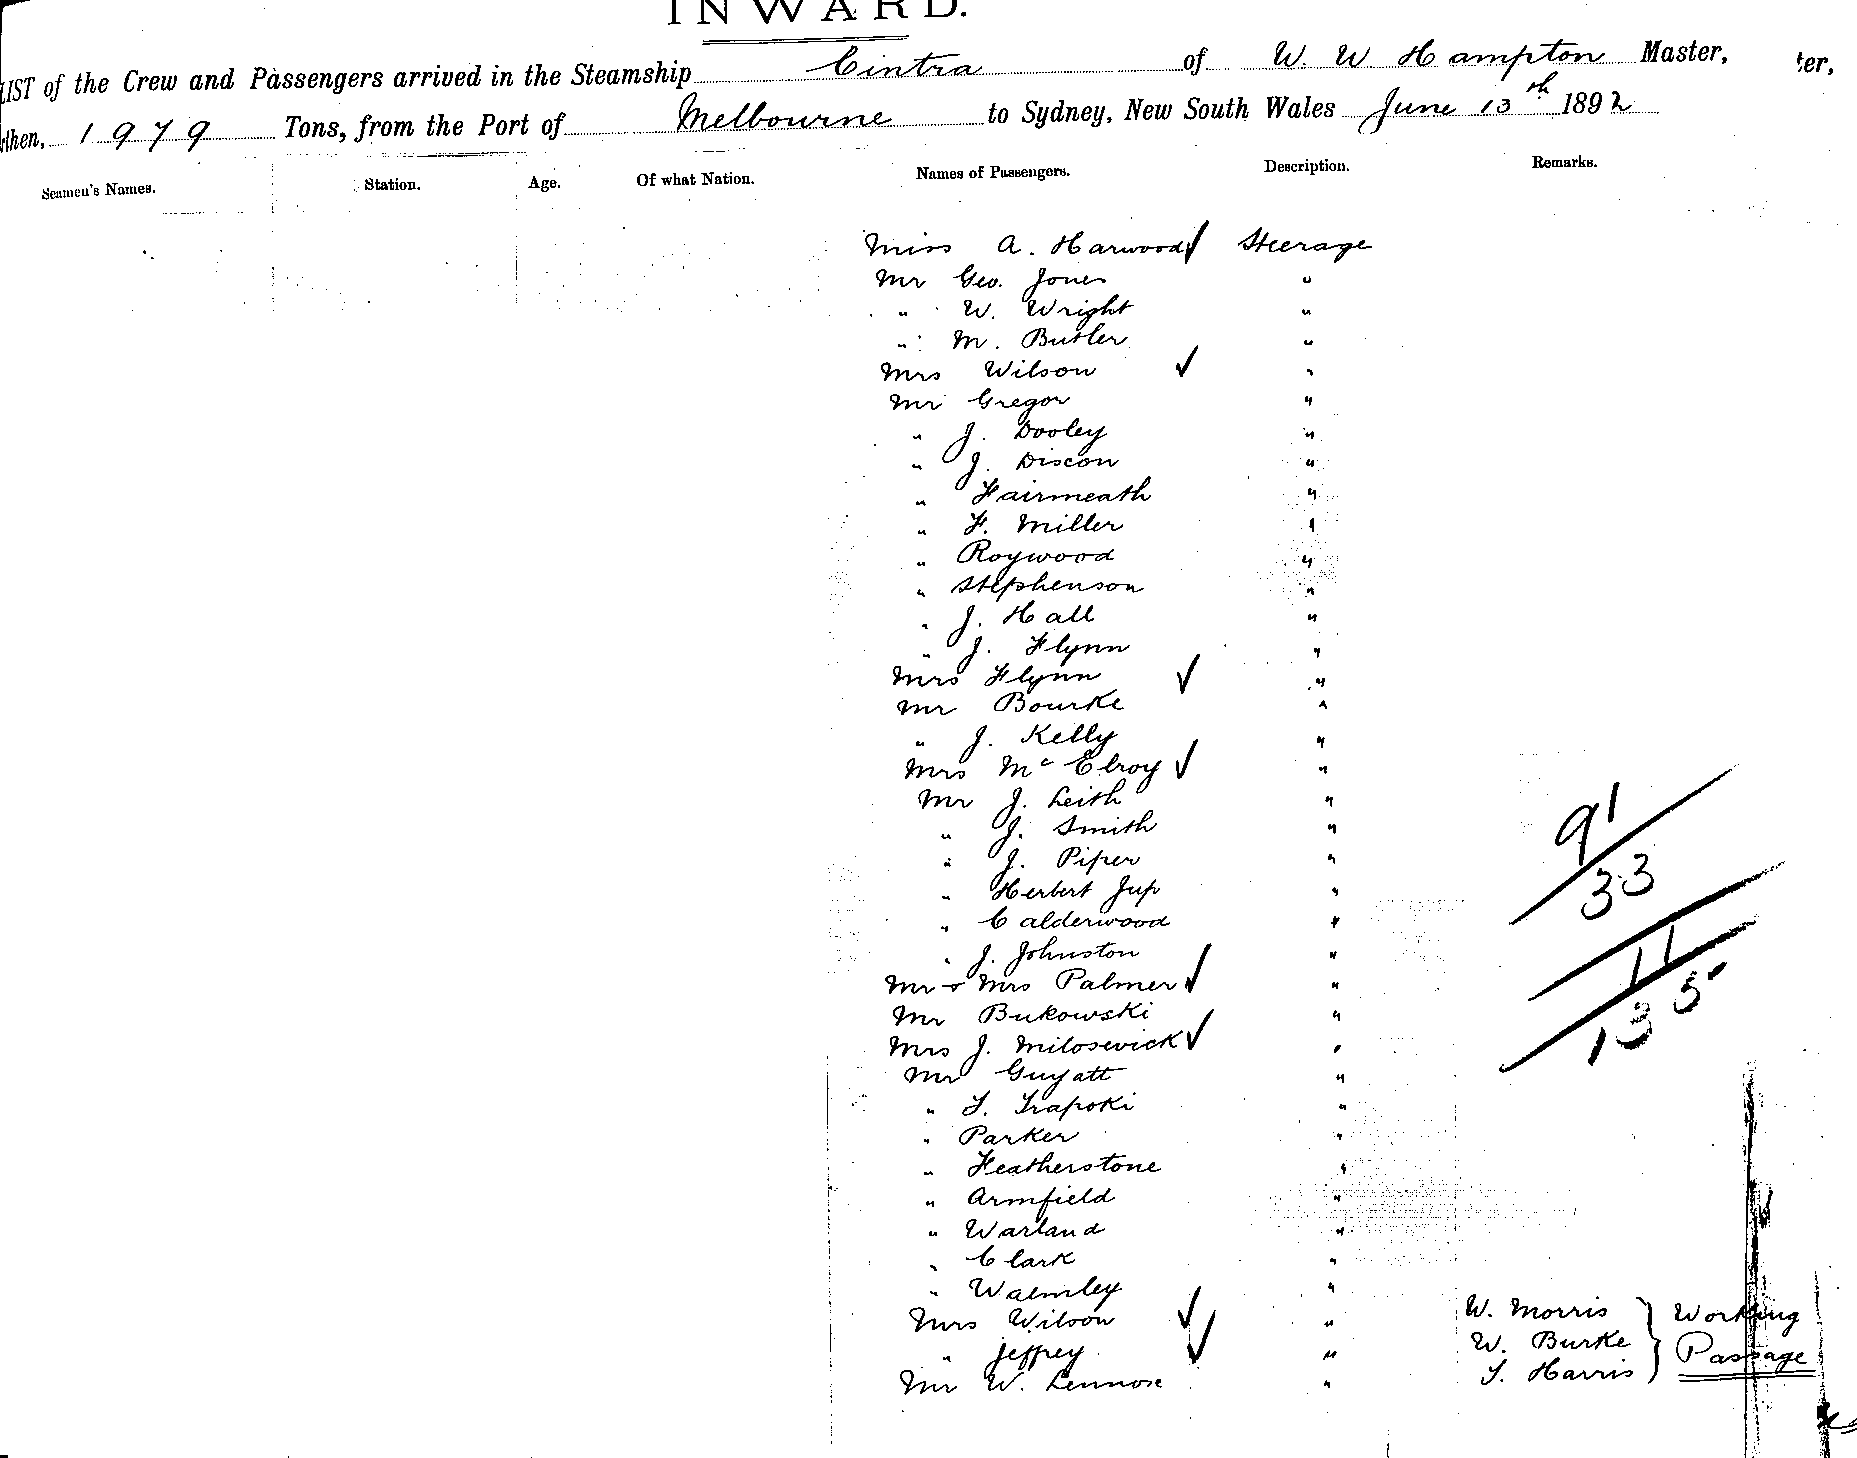 INWARD.
LIST of the Crew and Passengers arrived in the Steamship Cintra of W. W Hampton Master,
ter,
then, 1979 Tons, from the Port of Melbourne to Sydney, New South Wales June 13th 1892
Seamen's Names. Station. Age. Of what Nation. Names of Passengers. Description. Remarks.
Miss A. Harwood ✓ Steerage
Mr Geo. Jones "
" W. Wright "
" M. Butler "
Mrs Wilson ✓ "
Mr Gregor "
" J. Dooley "
" J. Discon "
" Fairmeath "
" F. Miller "
" Roywood "
" Stephenson "
" J. Hall "
" J. Flynn "
Mrs Flynn ✓ "
Mr Bourke "
" J. Kelly "
Mrs McElroy ✓ "
Mr J. Leith "
" J. Smith "
" J. Piper "
" Herbert Jup "
" Calderwood "
" J. Johnston "
Mr & Mrs Palmer ✓ "
Mr Bukowski "
Mrs J. Milosevick ✓ "
Mr Guyatt "
" T. Trapoki "
" Parker "
" Featherstone "
" Armfield "
" Warland "
" Clark "
" Walmley "
Mrs Wilson ✓ "
" Jeffrey ✓ "
Mr W. Lennox "
91
33
11
135
W. Morris } Working
W. Burke } Passage
T. Harris }